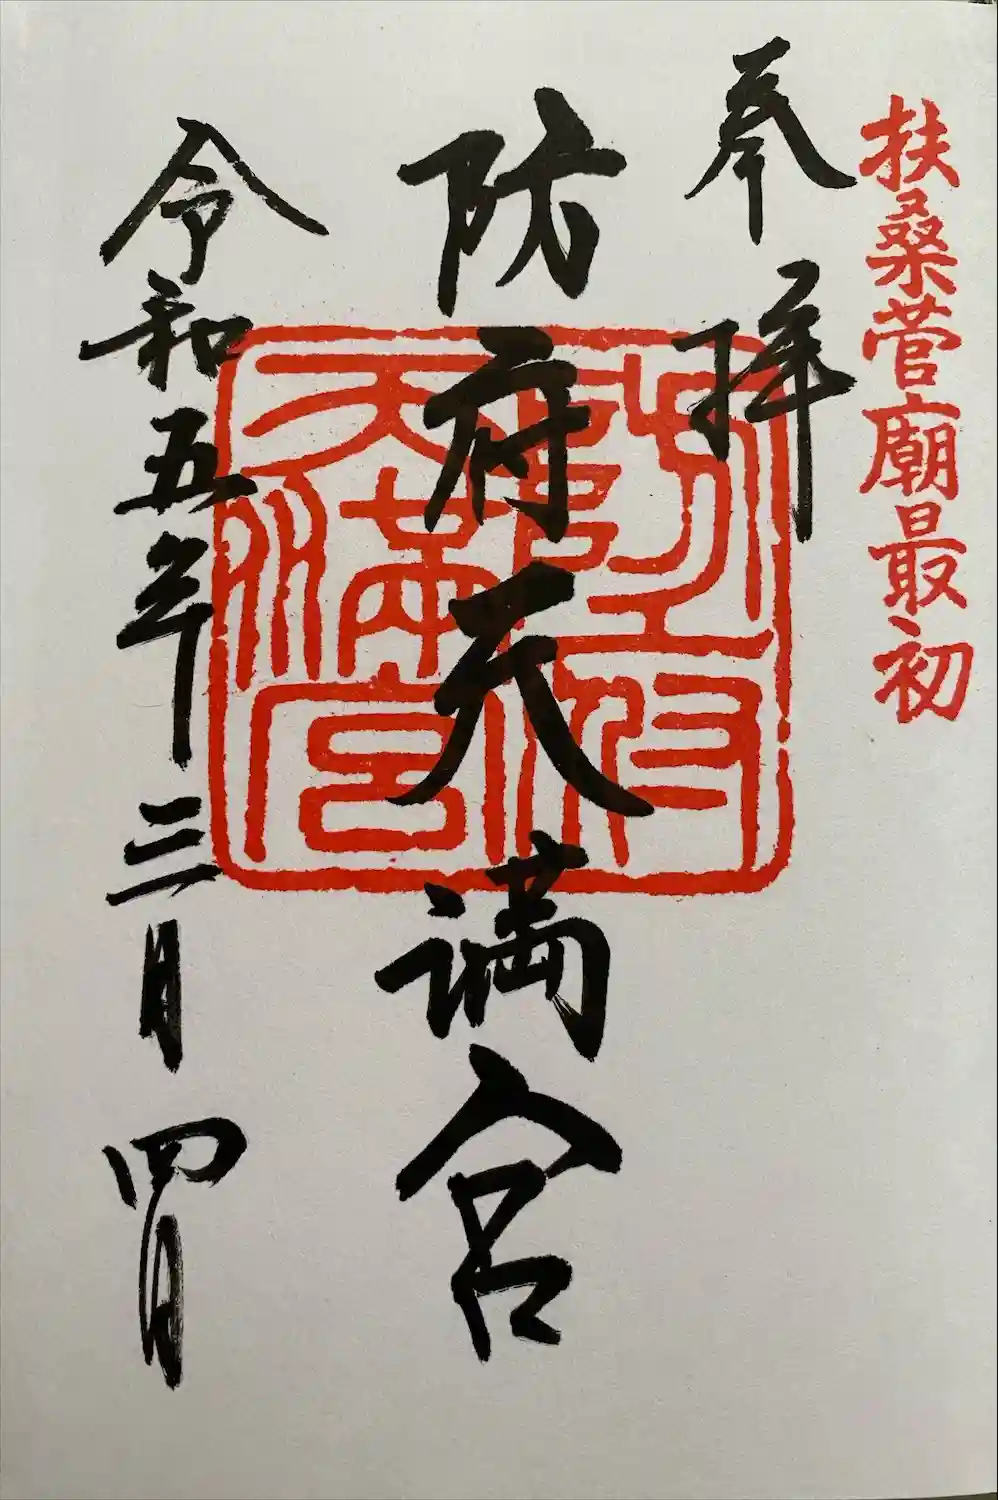 扶桑菅廟最初
奉拝
防府天満宮
勅宣防府天満宮
令和五年三月四日